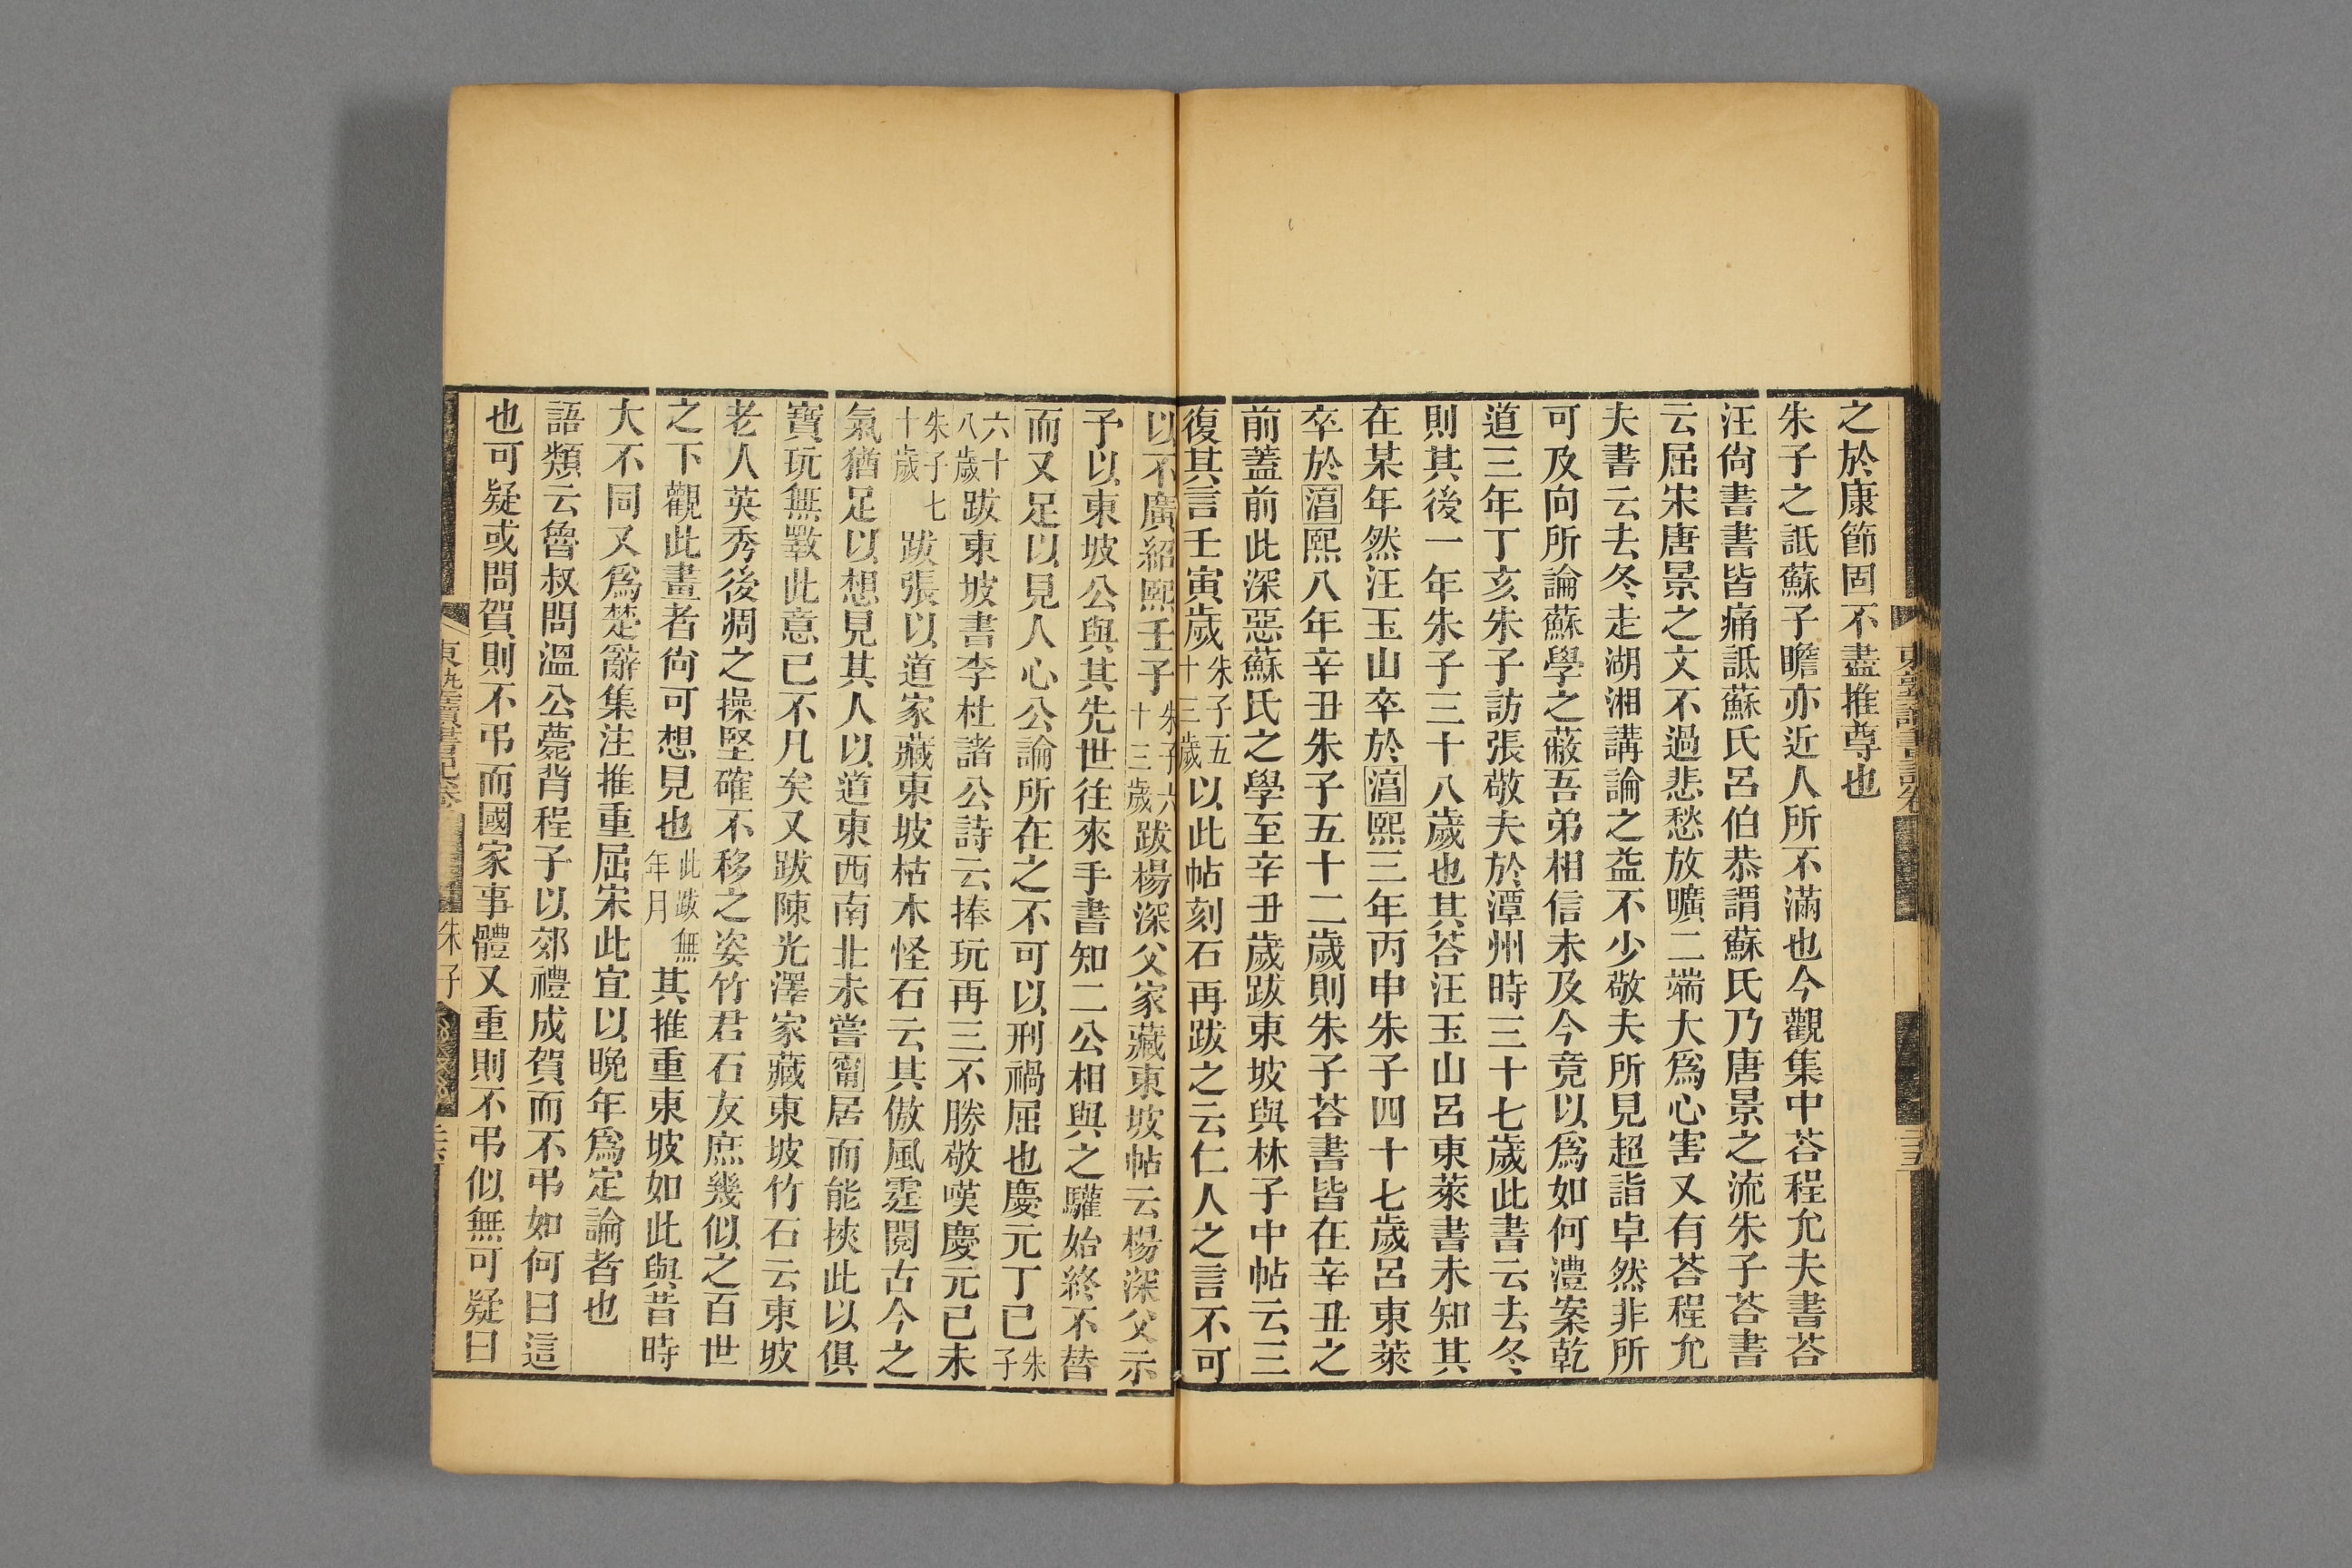 之於康節固不盡推尊也
朱子之詆蘇子瞻亦近人所不滿也今觀集中荅程允夫書荅
汪尙書書皆痛詆蘇氏呂伯恭謂蘇氏乃唐景之流朱子荅書
云屈宋唐景之文不過悲愁放曠二端大爲心害又有荅程允
夫書云去冬走湖湘講論之益不少敬夫所見超詣卓然非所
可及向所論蘇學之蔽吾弟相信未及今竟以爲如何澧案乾
道三年丁亥朱子訪張敬夫於潭州時三十七歲此書云去冬
則其後一年朱子三十八歲也其荅汪玉山呂東萊書未知其
在某年然汪玉山卒於湻熙三年丙申朱子四十七歲呂東萊
卒於湻熙八年辛丑朱子五十二歲則朱子荅書皆在辛丑之
前蓋前此深惡蘇氏之學至辛丑歲跋東坡與林子中帖云三
復其言壬寅歲朱子五十三歲以此帖刻石再跋之云仁人之言不可
以不廣紹熙壬子朱子六十三歲跋楊深父家藏東坡帖云楊深父示
予以東坡公與其先世往來手書知二公相與之驩始終不替
而又足以見人心公論所在之不可以刑禍屈也慶元丁巳朱子
六十八歲跋東坡書李杜諸公詩云捧玩再三不勝敬嘆慶元己未
朱子七十歲跋張以道家藏東坡枯木怪石云其傲風霆閱古今之
氣猶足以想見其人以道東西南北未嘗甯居而能挾此以俱
寶玩無斁此意已不凡矣又跋陳光澤家藏東坡竹石云東坡
老人英秀後凋之操堅確不移之姿竹君石友庶幾似之百世
之下觀此畫者尙可想見也此跋無年月其推重東坡如此與昔時
大不同又爲楚辭集注推重屈宋此宜以晚年爲定論者也
語類云魯叔問溫公薨背程子以郊禮成賀而不弔如何曰這
也可疑或問賀則不弔而國家事體又重則不弔似無可疑曰
朱子